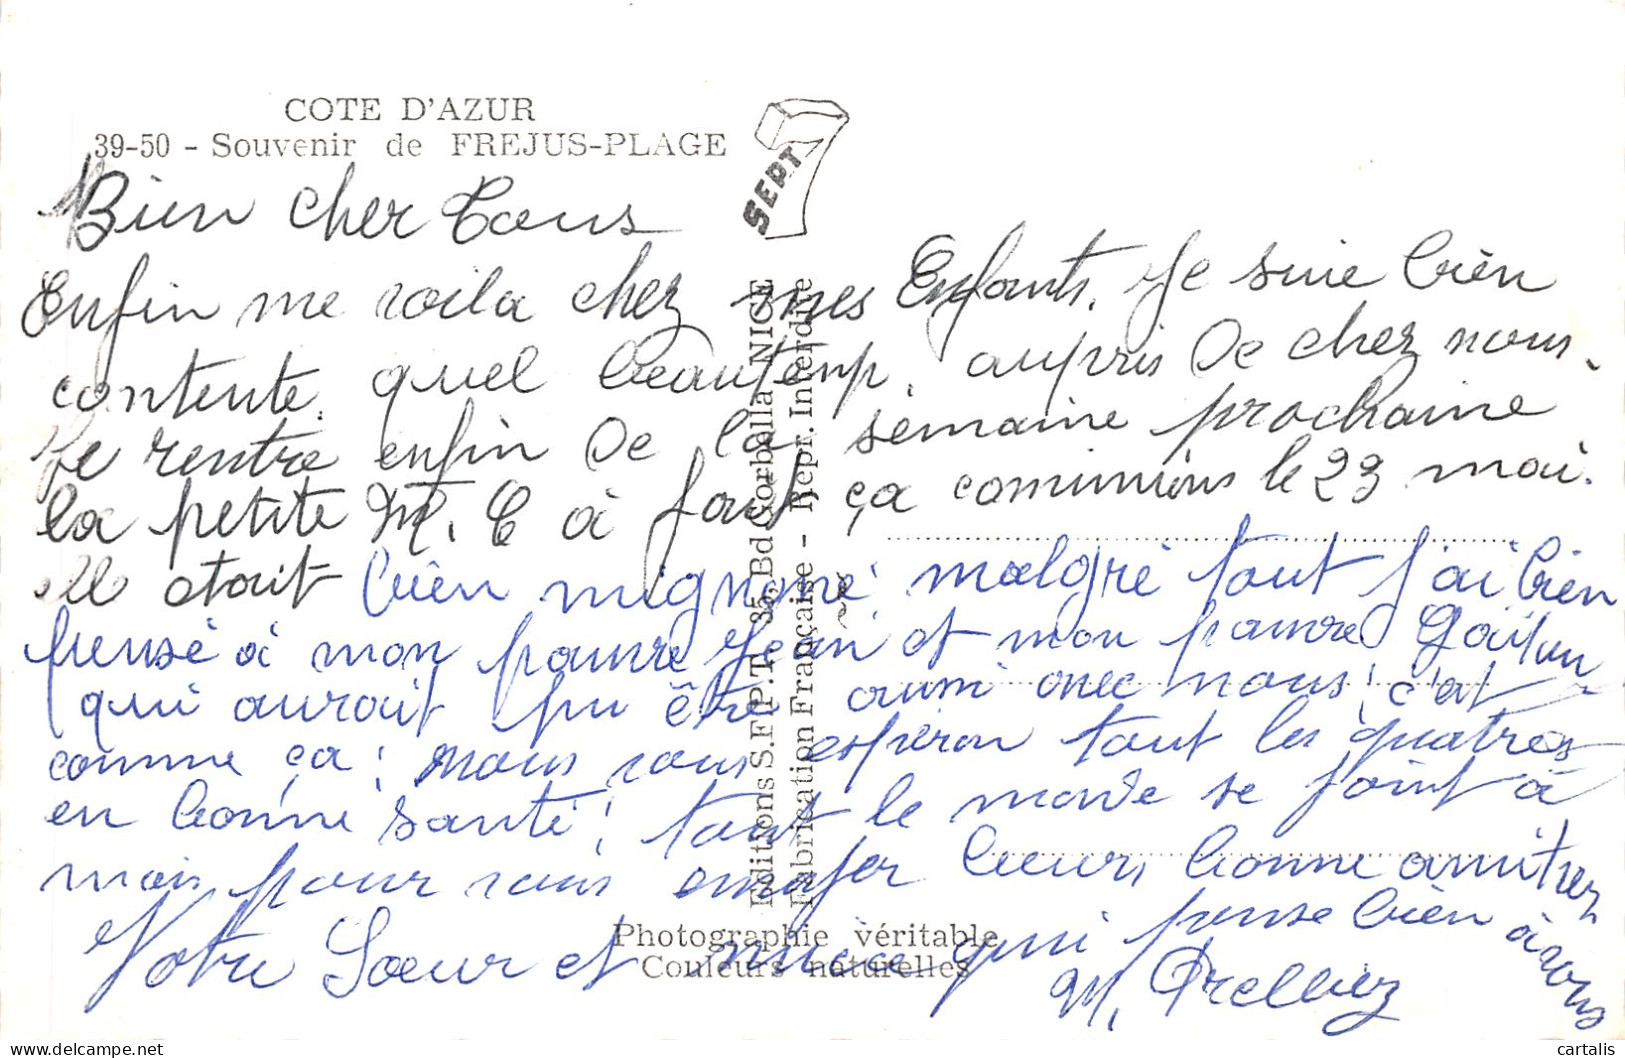 COTE D'AZUR
39-50 - Souvenir de FREJUS-PLAGE
SEPT 7
Bien cher Tous
Enfin me voila chez mes Enfants. Je suie bien
contente. quel beautemp. aupris de chez nous.
Je rentre enfin de la semaine prochaine
la petite M. C à fait ça communions le 23 mai.
elle etait bien mignone malgré tout j'ai bien
pensé à mon pauvre Jean et mon pauvre
qui aurait pu être aussi avec nous! c'est
comme ça! nous vous espéron tout les quatres
en bonne santé! tout le monde se joint à
mois pour vous envoyer leeurs bonne amitiez
Votre Sœur et niece qui pense bien à vous
M.
Editions S.F.P.T. - 35, Bd Gorbella, NICE
Fabrication Française - Repr. Interdite
Photographie véritable
Couleurs naturelles
cartalis